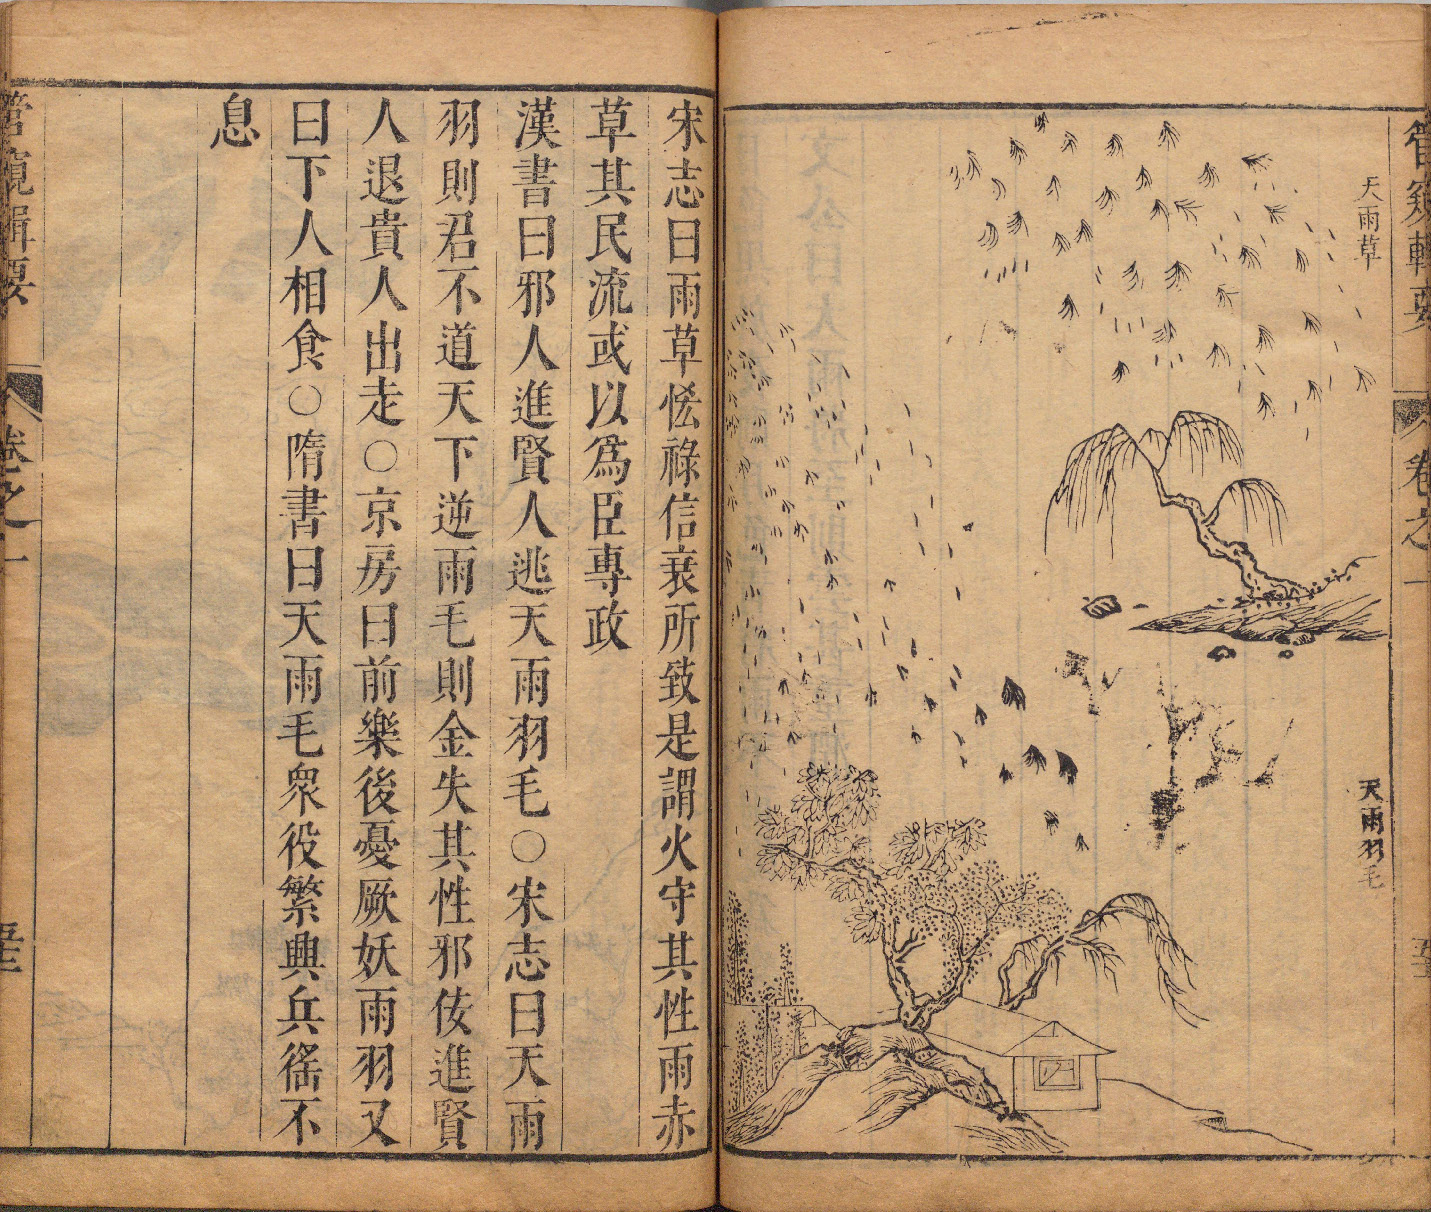 管窺輯要
卷之一
天雨草
天雨羽毛
宋志曰雨草恡祿信衰所致是謂火守其性雨赤
草其民流或以為臣專政
漢書曰邪人進賢人逃天雨羽毛○宋志曰天雨
羽則君不道天下逆雨毛則金失其性邪佞進賢
人退貴人出走○京房曰前樂後憂厥妖雨羽又
曰下人相食○隋書曰天雨毛眾役繁興兵徭不
息
管窺輯要
卷之一